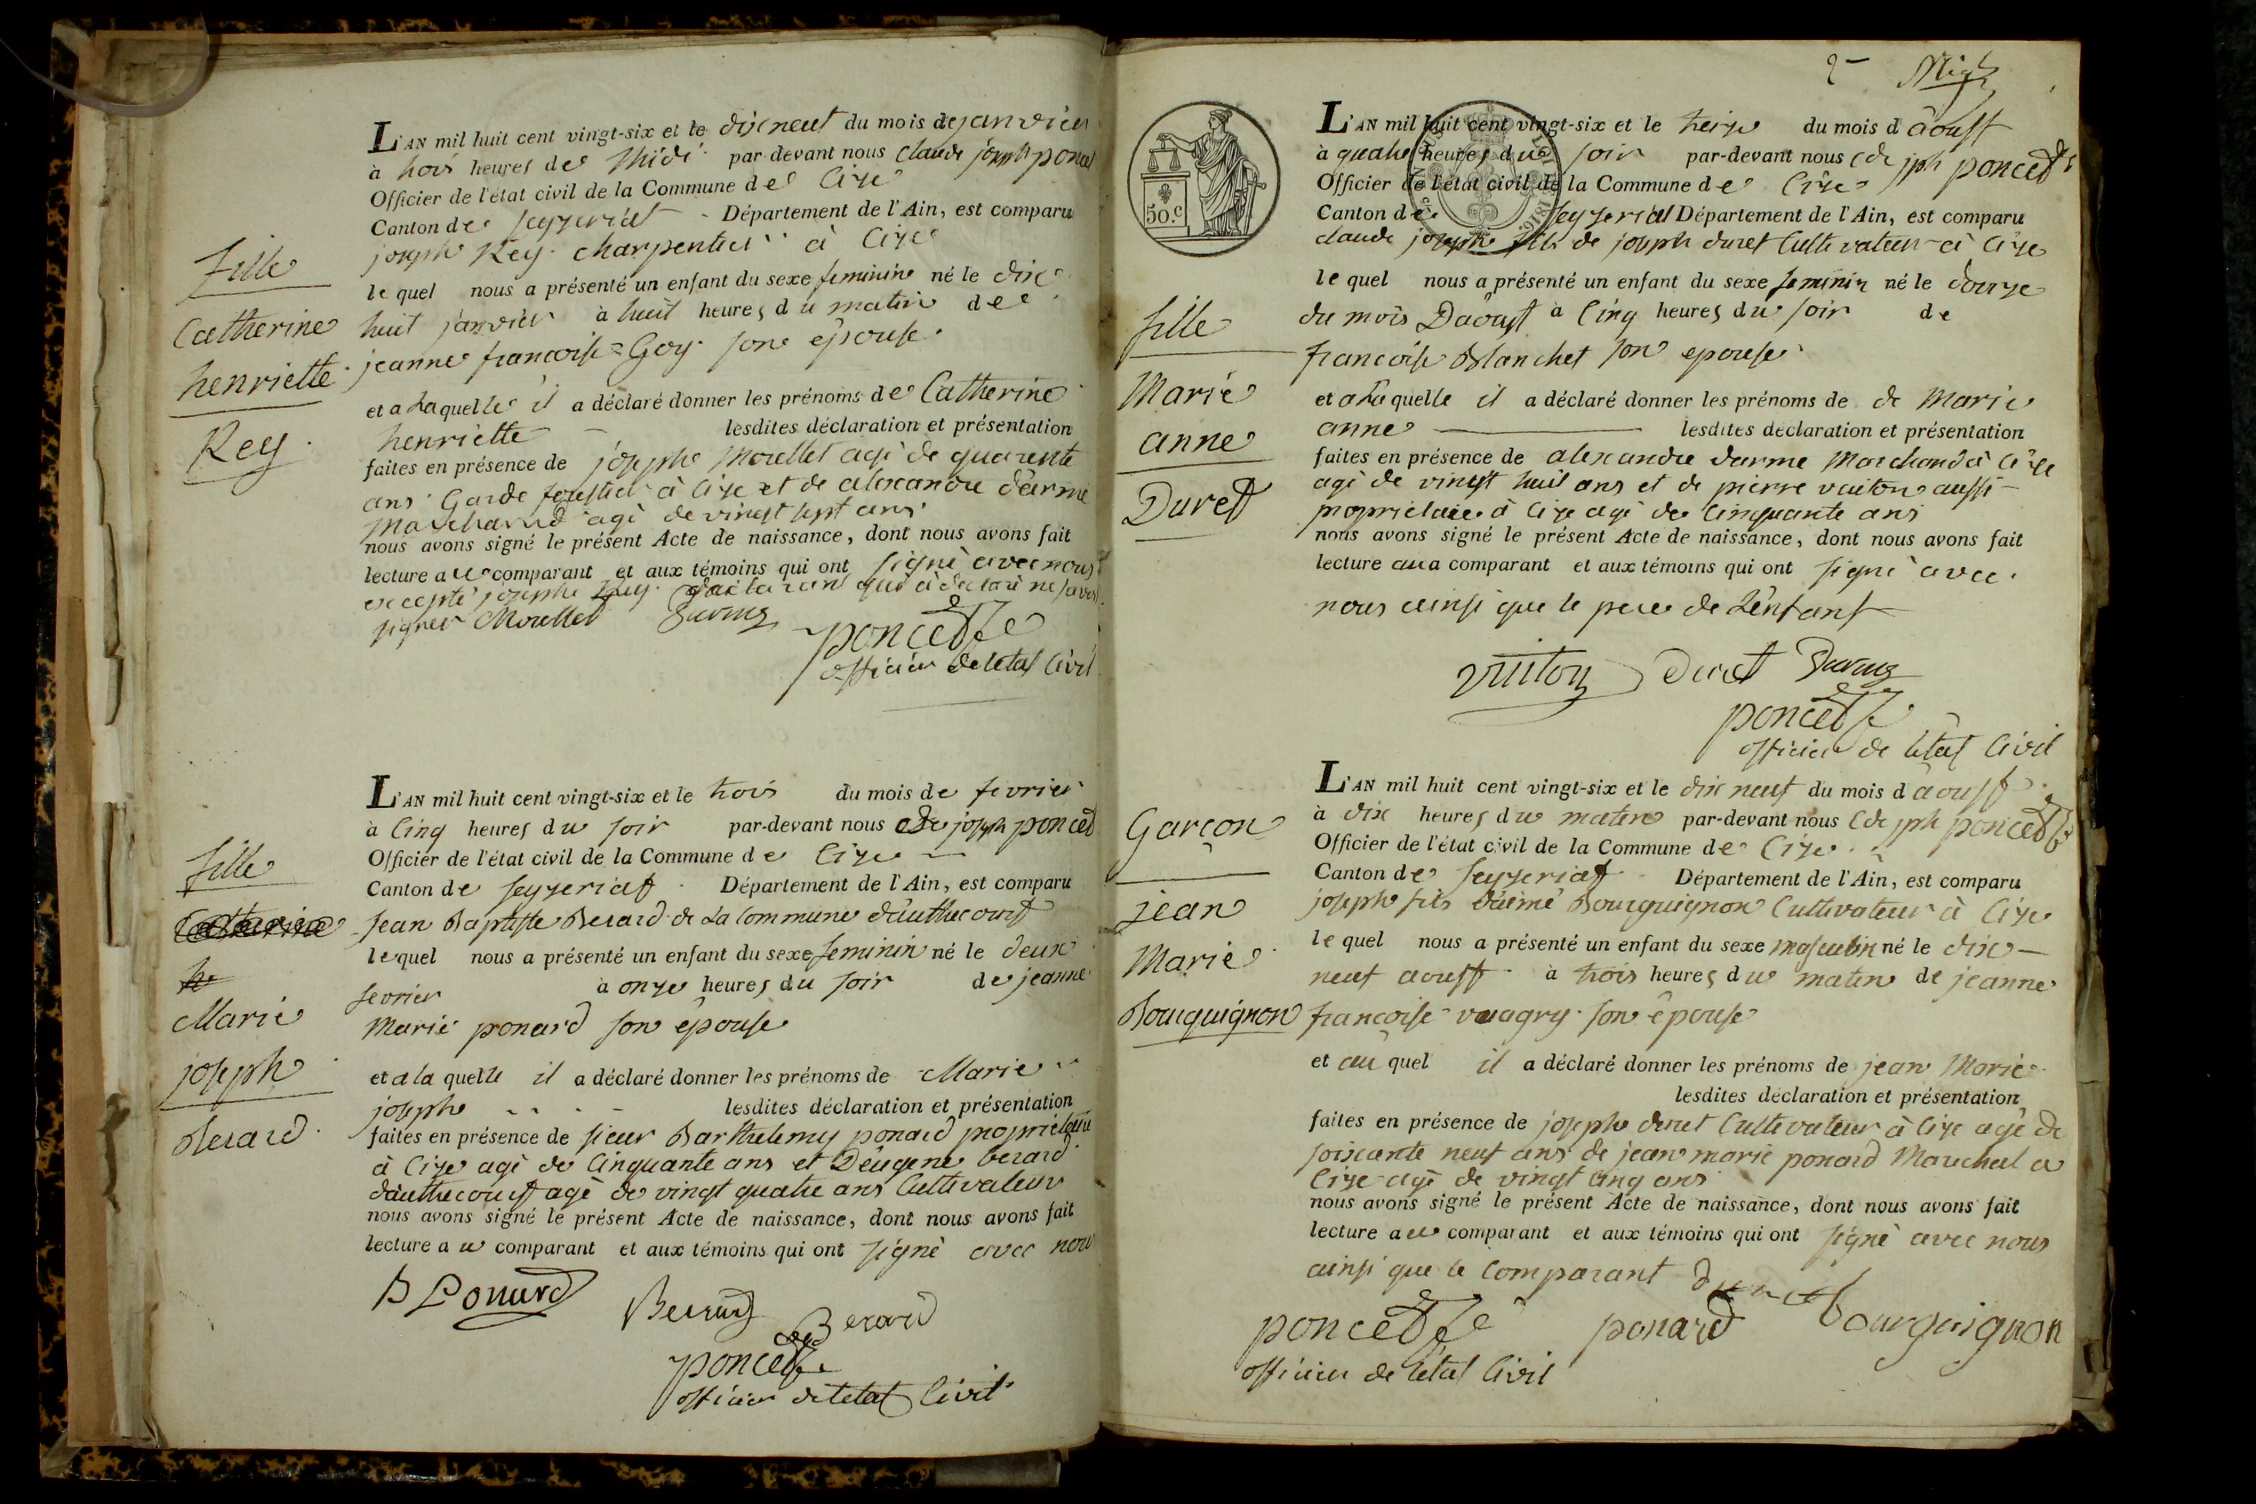 L'AN mil huit cent vingt-six et le dix neuf du mois de janvier
à trois heures de Midi par-devant nous claude joseph poncet
Officier de l'état civil de la Commune de Cize
Canton de seyzeriat Département de l'Ain, est comparu
joseph Rey charpentier à Cize
le quel nous a présenté un enfant du sexe feminin né le dix
huit janvier à huit heures du matin de
jeanne francoise Goy son épouse
et a laquelle il a déclaré donner les prénoms de Catherine
henriette lesdites déclaration et présentation
faites en présence de joseph Morellet agé de quarente
ans Garde forestier à Cize et de alexandre darme
Marchand agé de vingt sept ans
nous avons signé le présent Acte de naissance, dont nous avons fait
lecture au comparant et aux témoins qui ont signé avec nous
excepté joseph Rey declarant qui à declaré ne savoir
signer Morellet Darme
poncet
officier de letat Civil
fille
Catherine
henriette
Rey
L'AN mil huit cent vingt-six et le trois du mois de fevrier
à Cinq heures du soir par-devant nous Cde joseph poncet
Officier de l'état civil de la Commune de Cize
Canton de seyzeriat Département de l'Ain, est comparu
Jean Baptiste Berard de La Commune d'authecourt
lequel nous a présenté un enfant du sexe feminin né le deux
fevrier à onze heures du soir de jeanne
Marie ponard son épouse
et a la quelle il a déclaré donner les prénoms de Marie
joseph lesdites déclaration et présentation
faites en présence de sieur Barthelemy ponard proprietaire
à Cize agé de Cinquante ans et Deugene berard
d'authecourt agé de vingt quatre ans Cultivateur
nous avons signé le présent Acte de naissance, dont nous avons fait
lecture au comparant et aux témoins qui ont signé avec nous
B Ponard Berard Berard
poncet
officier de letat Civil
fille
Catherine
he
Marie
joseph
Berard
2
L'AN mil huit cent vingt-six et le treize du mois d'aoust
à quatre heures du soir par-devant nous Cde jph poncet
Officier de l'état civil de la Commune de Cize
Canton de seyzeriat Département de l'Ain, est comparu
claude joseph fils de joseph duret Cultivateur à Cize
le quel nous a présenté un enfant du sexe feminin né le douze
du mois Daoust à Cinq heures du soir de
francoise Blanchet son epouse
et a la quelle il a déclaré donner les prénoms de de Marie
anne lesdites déclaration et présentation
faites en présence de alexandre darme Marchand à Cize
agé de vingt huit ans et de pierre vuiton aussi
proprietaire à Cize agé de Cinquante ans
nous avons signé le présent Acte de naissance, dont nous avons fait
lecture au comparant et aux témoins qui ont signé avec
nous ainsi que le pere de L'enfant
vuiton Duret Darme
poncet
officier de letat Civil
50.c
fille
Marie
anne
Duret
L'AN mil huit cent vingt-six et le dix neuf du mois d'aoust
à dix heures du matin par-devant nous Cde jph poncet
Officier de l'état civil de la Commune de Cize
Canton de seyzeriat Département de l'Ain, est comparu
joseph fils d'aimé Bourguignon Cultivateur à Cize
le quel nous a présenté un enfant du sexe masculin né le dix
neuf aoust à trois heures du matin de jeanne
francoise vuagry son épouse
et au quel il a déclaré donner les prénoms de jean Marie
lesdites déclaration et présentation
faites en présence de joseph duret Cultivateur à Cize agé de
soixante neuf ans de jean marie ponard Marechal a
Cize agé de vingt Cinq ans
nous avons signé le présent Acte de naissance, dont nous avons fait
lecture au comparant et aux témoins qui ont signé avec nous
ainsi que le Comparant Duret
poncet ponard bourguignon
officier de letat Civil
Garçon
jean
Marie
Bourguignon